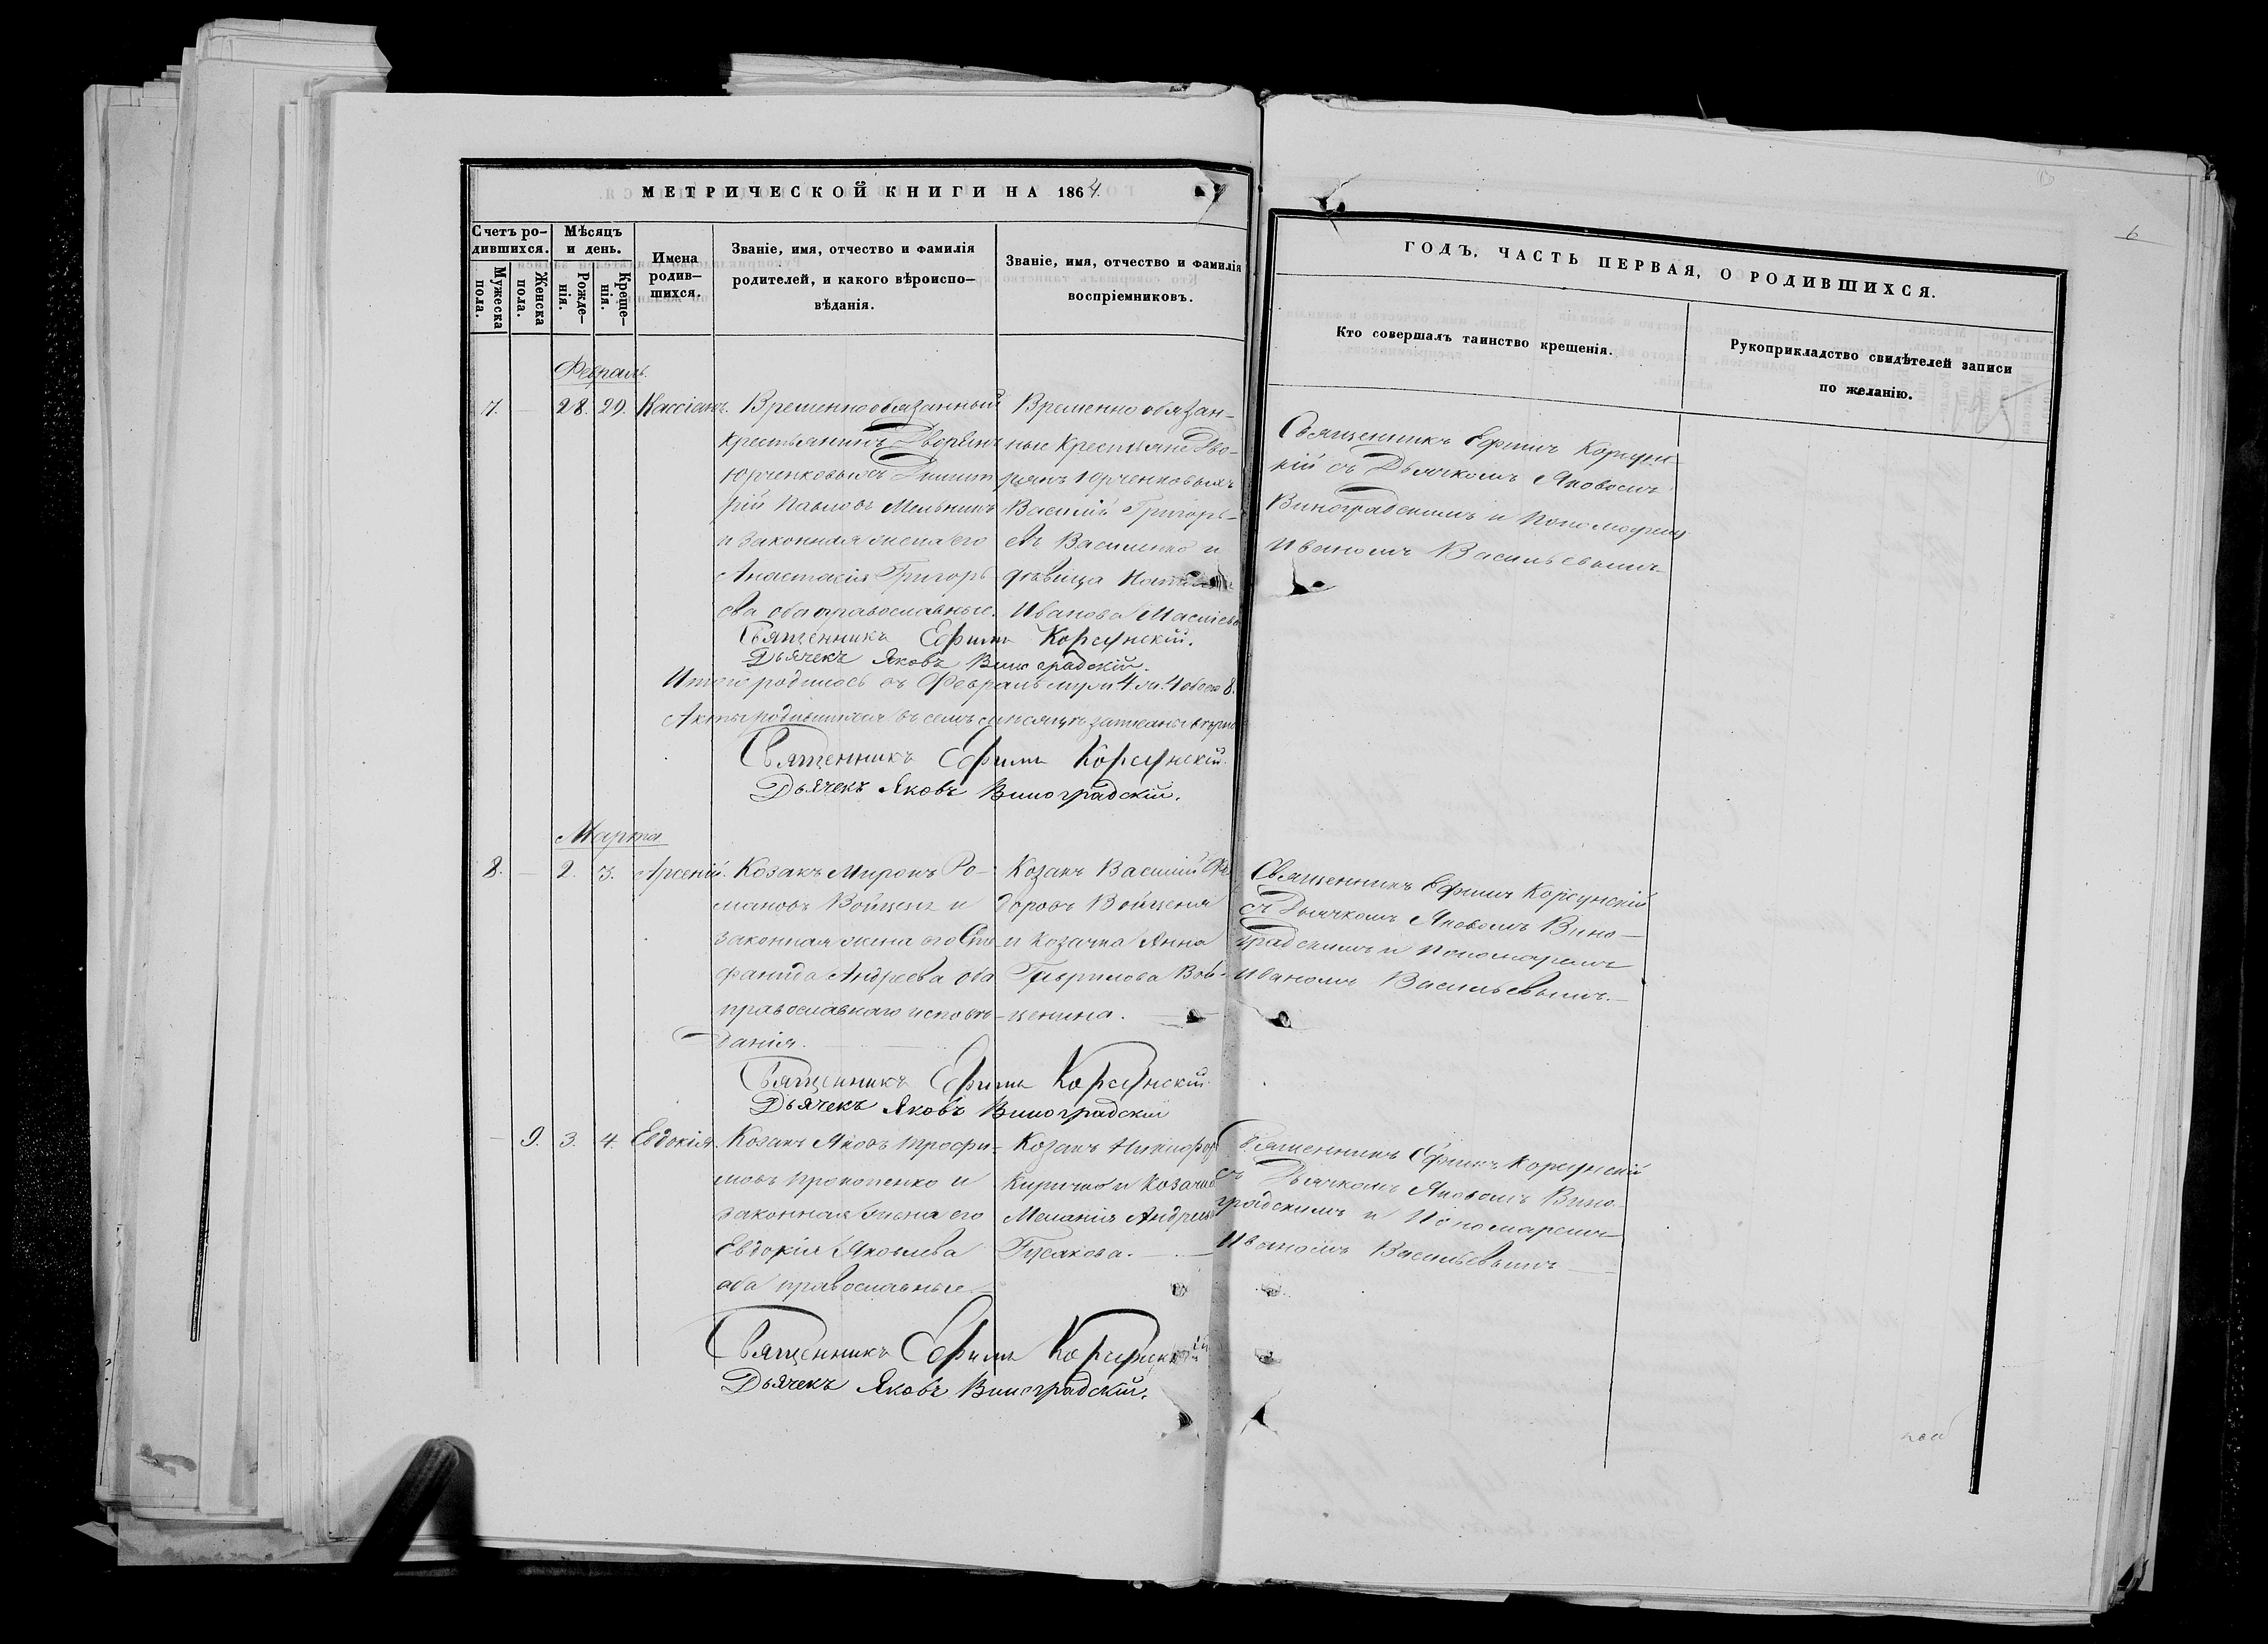 МЕТРИЧЕСКОЙ КНИГИ НА 1864.
Счетъ ро-
дившихся.
Мужеска
пола.
Женска
пола.
Мѣсяцъ
и день.
Рожде-
нія.
Креще-
нія.
Имена
родив-
шихся.
Званіе, имя, отчество и фамилія
родителей, и какого вѣроиспо-
вѣданія.
Званіе, имя, отчество и фамилія
воспріемниковъ.
Февраль.
7. — 28. 29. Кассіанъ.
Временнообязанный
крестьянинъ Дворянъ
Юрченковыхъ Димит
рій Павловъ Мельникъ
и законная жена его
Анастасія Григорь
ева оба православные.
Временно обязан-
ные крестьяне Дво-
рянъ Юрченковыхъ
Василій Григорь-
евъ Василенко и
дѣвица
Иванова
Священникъ Ефимъ Корсунскій.
Дьячекъ Яковъ Виноградскій.
Итого родилось въ Февралѣ муж. 4 жен. 4 обоего 8.
Акты родившихся въ семъ мѣсяцѣ записаны вѣрно
Священникъ Ефимъ Корсунскій.
Дьячекъ Яковъ Виноградскій.
Марта
8. — 2. 3. Арсеній.
Козакъ Миронъ Ро-
мановъ и
законная жена его Сте-
фанида Андреева оба
православнаго исповѣ-
данія.
Козакъ Василій Фе
доровъ Войценя
и Козачка Анна
Гаврилова Вой-
ценина.
Священникъ Ефимъ Корсунскій.
Дьячекъ Яковъ Виноградскій
— 9. 3. 4. Евдокія.
Козакъ Яковъ Трофи-
мовъ Прокопенко и
законная жена его
Евдокія Яковлева
оба православные.
Козакъ Никифоръ
и Козачка
Меланія Андреева
Гусакова.
Священникъ Ефимъ Корсунскій
Дьячекъ Яковъ Виноградскій.
6
ГОДЪ, ЧАСТЬ ПЕРВАЯ, О РОДИВШИХСЯ.
Кто совершалъ таинство крещенія.
Рукоприкладство свидѣтелей записи
по желанію.
Священникъ Ефимъ Корсун-
кій съ Дьячкомъ Яковомъ
Виноградскимъ и Пономаремъ
Иваномъ Васильевымъ
Священникъ Ефимъ Корсунскій
съ Дьячкомъ Яковомъ Вино-
градскимъ и Пономаремъ
Иваномъ Васильевымъ.
Священникъ Ефимъ Корсунскій
съ Дьячкомъ Яковомъ Вино-
градскимъ и Пономаремъ
Иваномъ Васильевымъ